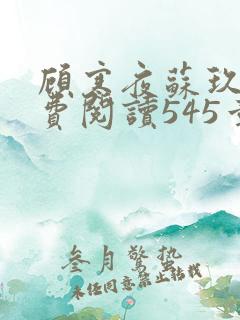 顧寒夜蘇玖
費閱讀545
叁月驚蟄
未经同意禁止搬栽